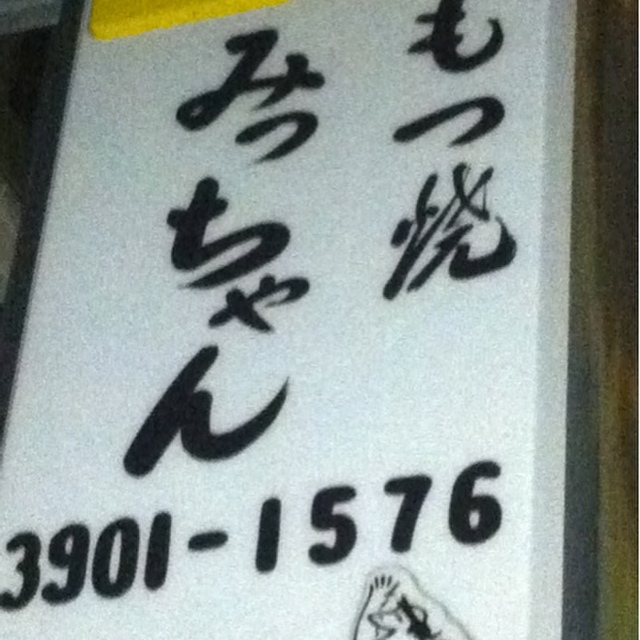 もつ焼
みっちゃん
3901-1576